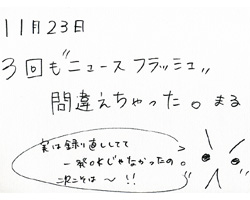 11月23日
3回も"ニュースフラッシュ"
間違えちゃった。まる
実は録り直ししてて
一発OKじゃなかったの。
次こそは〜!!